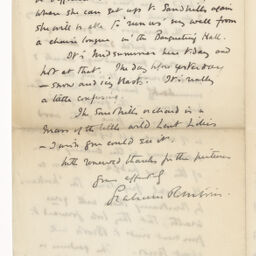 where she can get up to Sandhills again
she will be able to run us very well from
a chaise longue in the Banqueting Hall.
It's midsummer here today and
hot at that. The day before yesterday
— snow and icy blast. It's really
a little confusing.
The Sandhills orchard is a
mass of the little wild Lent Lilies
— I wish you could see it.
With renewed thanks for the pictures
Yrs affectly
Graham Robertson